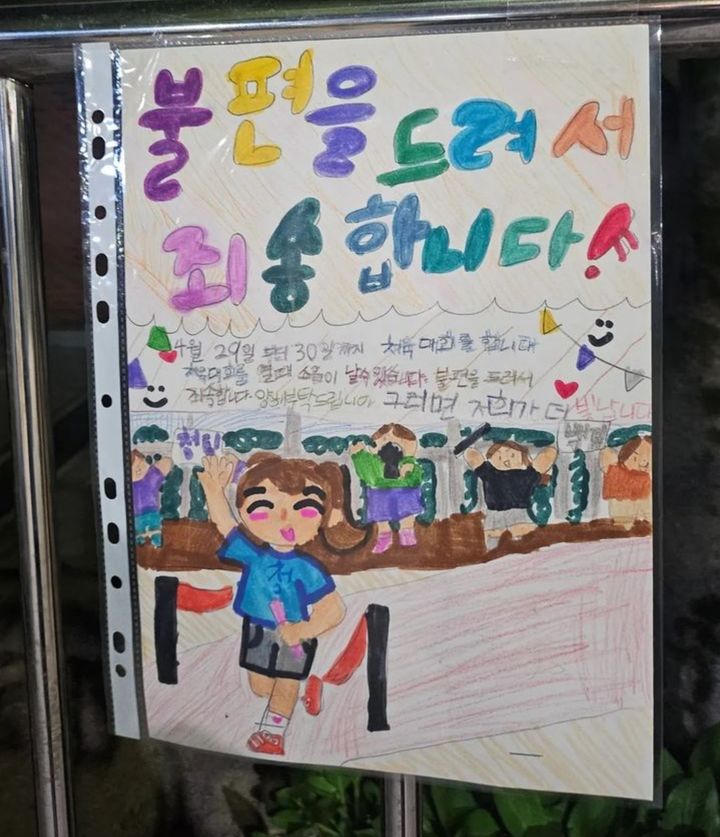 불편을드려서
죄송합니다!
4월 29일 부터 30일까지 체육대회를 합니다
체육대회를 열때 소음이 날수있습니다. 불편을 드려서
죄송합니다 양해부탁드립니다 그러면 저희가 더빛납니다
청